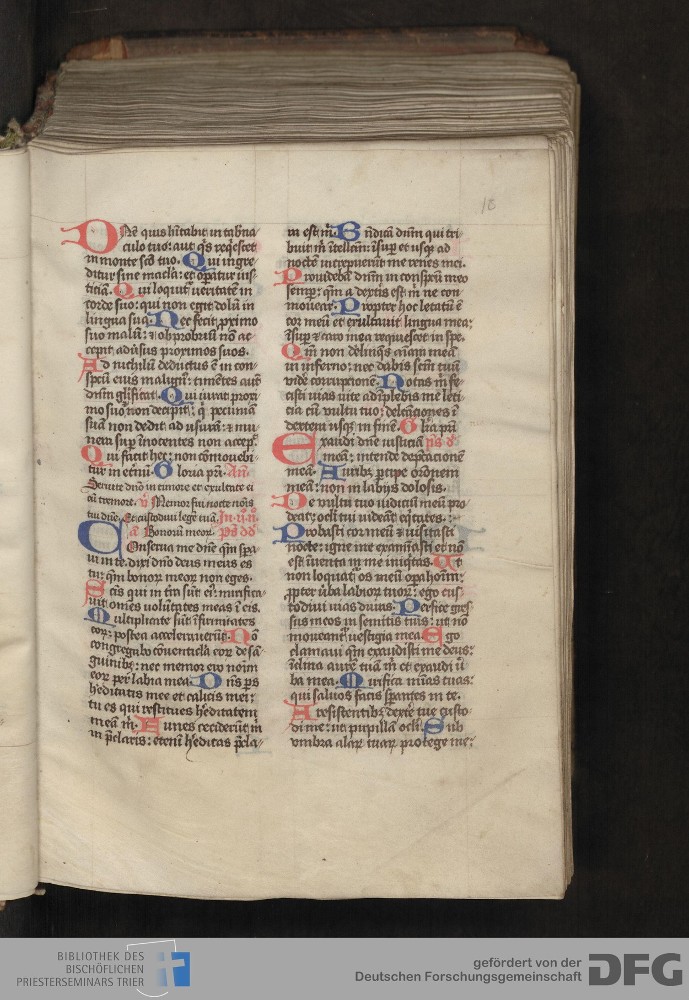 18
Dñe quis hītabit in tab̄na
culo tuo: aut q̇s reqescet
in monte sc̄o tuo. Qui ingre
ditur sine macl̄a: et op̄atur ius
ticiā. Qui loquit᷑ ūeritatem in
corde suo: qui non egit dolū in
lingua sua. Nec fecit ꝓximo
suo malū: ⁊ obprobriū nō ac
cepit adūsus proximos suos.
Ad nichilū deductus ē in con-
spc̄u eius malign᷑: timētes aūt
dn̄m gl̄ificat. Qui iurat proxi
mo suo ⁊ non decipit: q̇ pecuniā
suā non dedit ad usurā: ⁊ mu
nera suꝑ īnocentes non accep᷑.
Qui facit hec: non cōmouebi-
tur in et̄nū. Gloria pr̄i. An̄
Seruite dn̄o in timore et exultate ei
cū tremore. v̄ Memor fui nocte noīs
tui dn̄e. Et custodiui legē tuā.
a᷑ Bonorū meoꝝ. ps dd
Conserua me dn̄e qm̄ spa
ui in te. dixi dn̄o deus meus es
tu: qm̄ bonoꝝ meoꝝ non eges.
Sc̄is qui in t̄ra sūt ei᷑: mirifica
uit om̄es volūtates meas ī eis.
Multiplicate sūt īfirmitates
eoꝝ: postea accelerauerūt. Nō
congregabo cōuenticl̄a eoꝝ de sā-
guinibꝫ: nec memor ero noīm
eoꝝ per labia mea. Dn̄s ps̄
h̄editatis mee et calicis mei:
tu es qui restitues h̄editatem
meā m̄. Funes ceciderūt m̄
in p̄claris: eteni h̄editas p̄cla-
ra est m̄. Bn̄dicā dn̄m qui tri-
buit m̄ ītellc̄m: īsuꝑ et usqꝫ ad
noctē increpuerūt me renes mei.
Prouidebā dn̄m in conspc̄u meo
semꝑ: qm̄ a dextris est m̄ ne con
mouear. Propter hoc letatū ē
cor meū et exultauit lingua mea:
īsuꝑ ⁊ caro mea requiescet in spe.
Qm̄ non delinq̄s aīam meā
in inferno: nec dabis sc̄m tuū
videre corrupcionē. Notas m̄ fe-
cisti uias uite adīplebis me leti
cia cū vultu tuo: delc̄aciones ī
dextera usqꝫ in finē. Gl̄ia pr̄i
Exaudi dn̄e iusticiā ps̄ d̄
meā: intende dep̄cacionē
meā. Auribꝫ ꝑcipe or̄onem
meā: non in labijs dolosis.
De vultu tuo iudiciū meū pro
deat: ocl̄i tui uideāt eq̇tates.
Probasti cor meū ⁊ uisitasti
nocte: igne me examīasti et nō
est īuenta in me iniq̇tas. Ut
non loquat᷑ os meū oꝑa hoīm:
ꝓpter ūba labioꝝ tuoꝝ: ego cus
todiui uias duras. Perfice gres
sus meos in semitis tuis: ut nō
moueant᷑ uestigia mea. Ego
clamaui qm̄ exaudisti me deus:
īclina aurē tuā m̄ et exaudi ū
ba mea. Mirifica mīas tuas:
qui saluos facis sꝑantes in te.
A resistentibꝫ dextere tue custo-
di me: ut pupillā ocl̄i. Sub
vmbra alaꝝ tuaꝝ protege me:
BIBLIOTHEK DES
BISCHÖFLICHEN
PRIESTERSEMINARS TRIER
gefördert von der
Deutschen Forschungsgemeinschaft
DFG